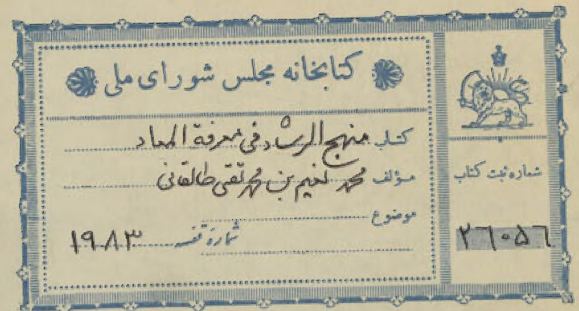 کتابخانه مجلس شورای ملی
کتاب منهج الرشاد فی معرفة المعاد
مؤلف محمد نعیم بن محمد تقی طالقانی
موضوع
شماره قفسه ۱۹۸۳
شماره ثبت کتاب
۲۶۰۵۶